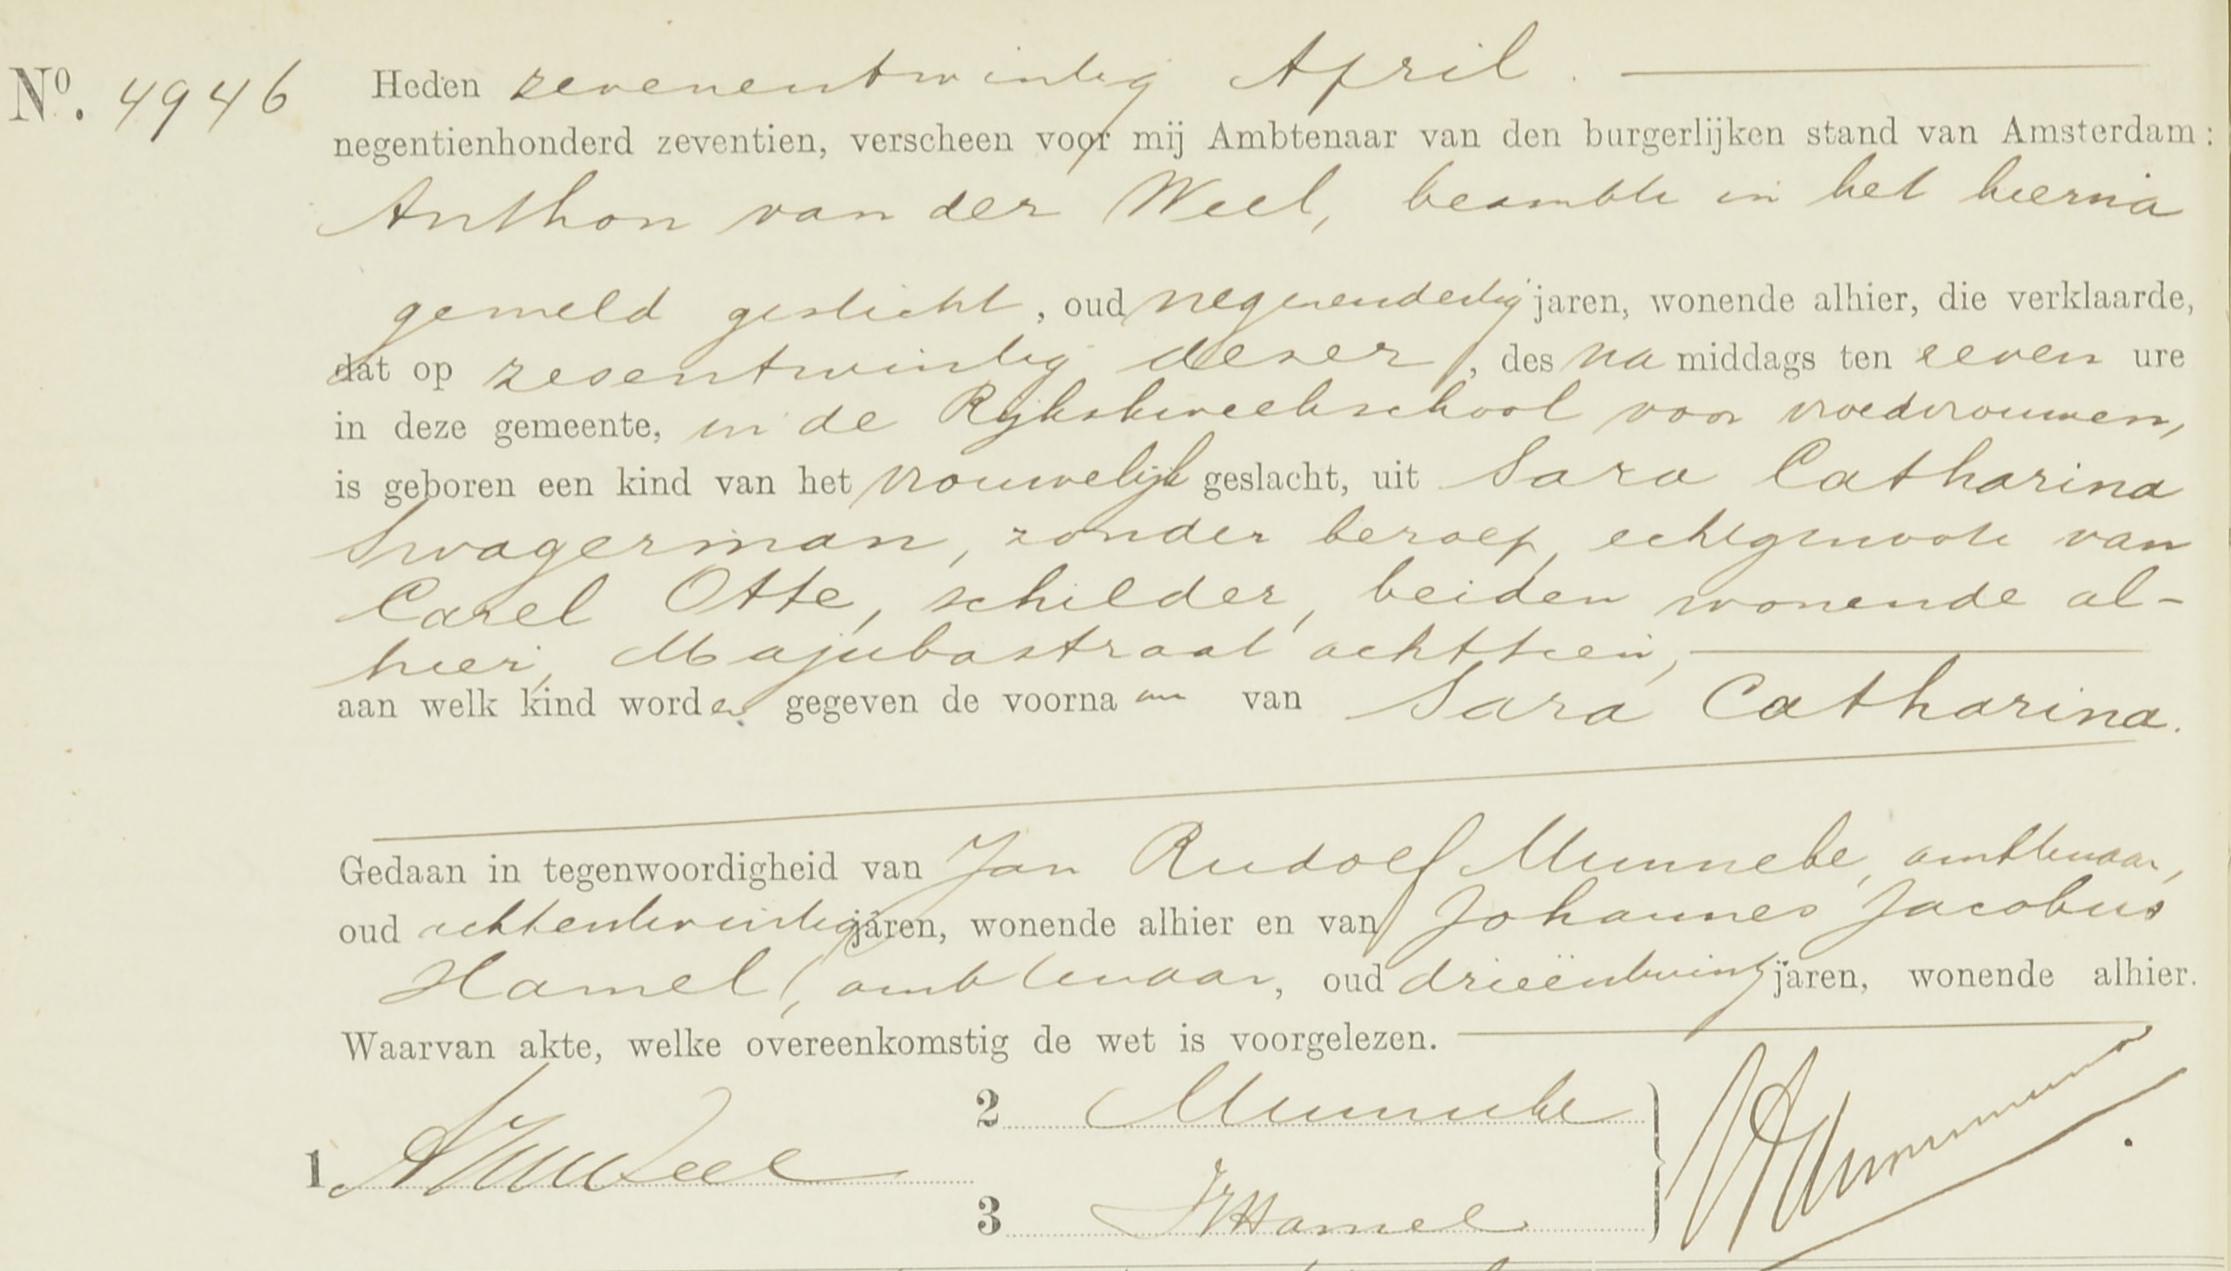 No. 4946 Heden zevenentwintig April.
negentienhonderd zeventien, verscheen voor mij Ambtenaar van den burgerlijken stand van Amsterdam:
Anthon van der Weel, beambte in het hierna
gemeld gesticht, oud negenendertig jaren, wonende alhier, die verklaarde,
dat op zesentwintig dezer, des na middags ten zeven ure
in deze gemeente, in de Rijkskweekschool voor vroedvrouwen,
is geboren een kind van het vrouwelijk geslacht, uit Sara Catharina
Swagerman, zonder beroep, echtgenoote van
Carel Otte, schilder, beiden wonende al-
hier, Majubastraat achttien,
aan welk kind worden gegeven de voornamen van Sara Catharina.
Gedaan in tegenwoordigheid van Jan Rudolf Munneke, ambtenaar,
oud achtentwintig jaren, wonende alhier en van Johannes Jacobus
Hamel, ambtenaar, oud drieëntwintig jaren, wonende alhier.
Waarvan akte, welke overeenkomstig de wet is voorgelezen.
2 Munneke
1
3 JJHamel